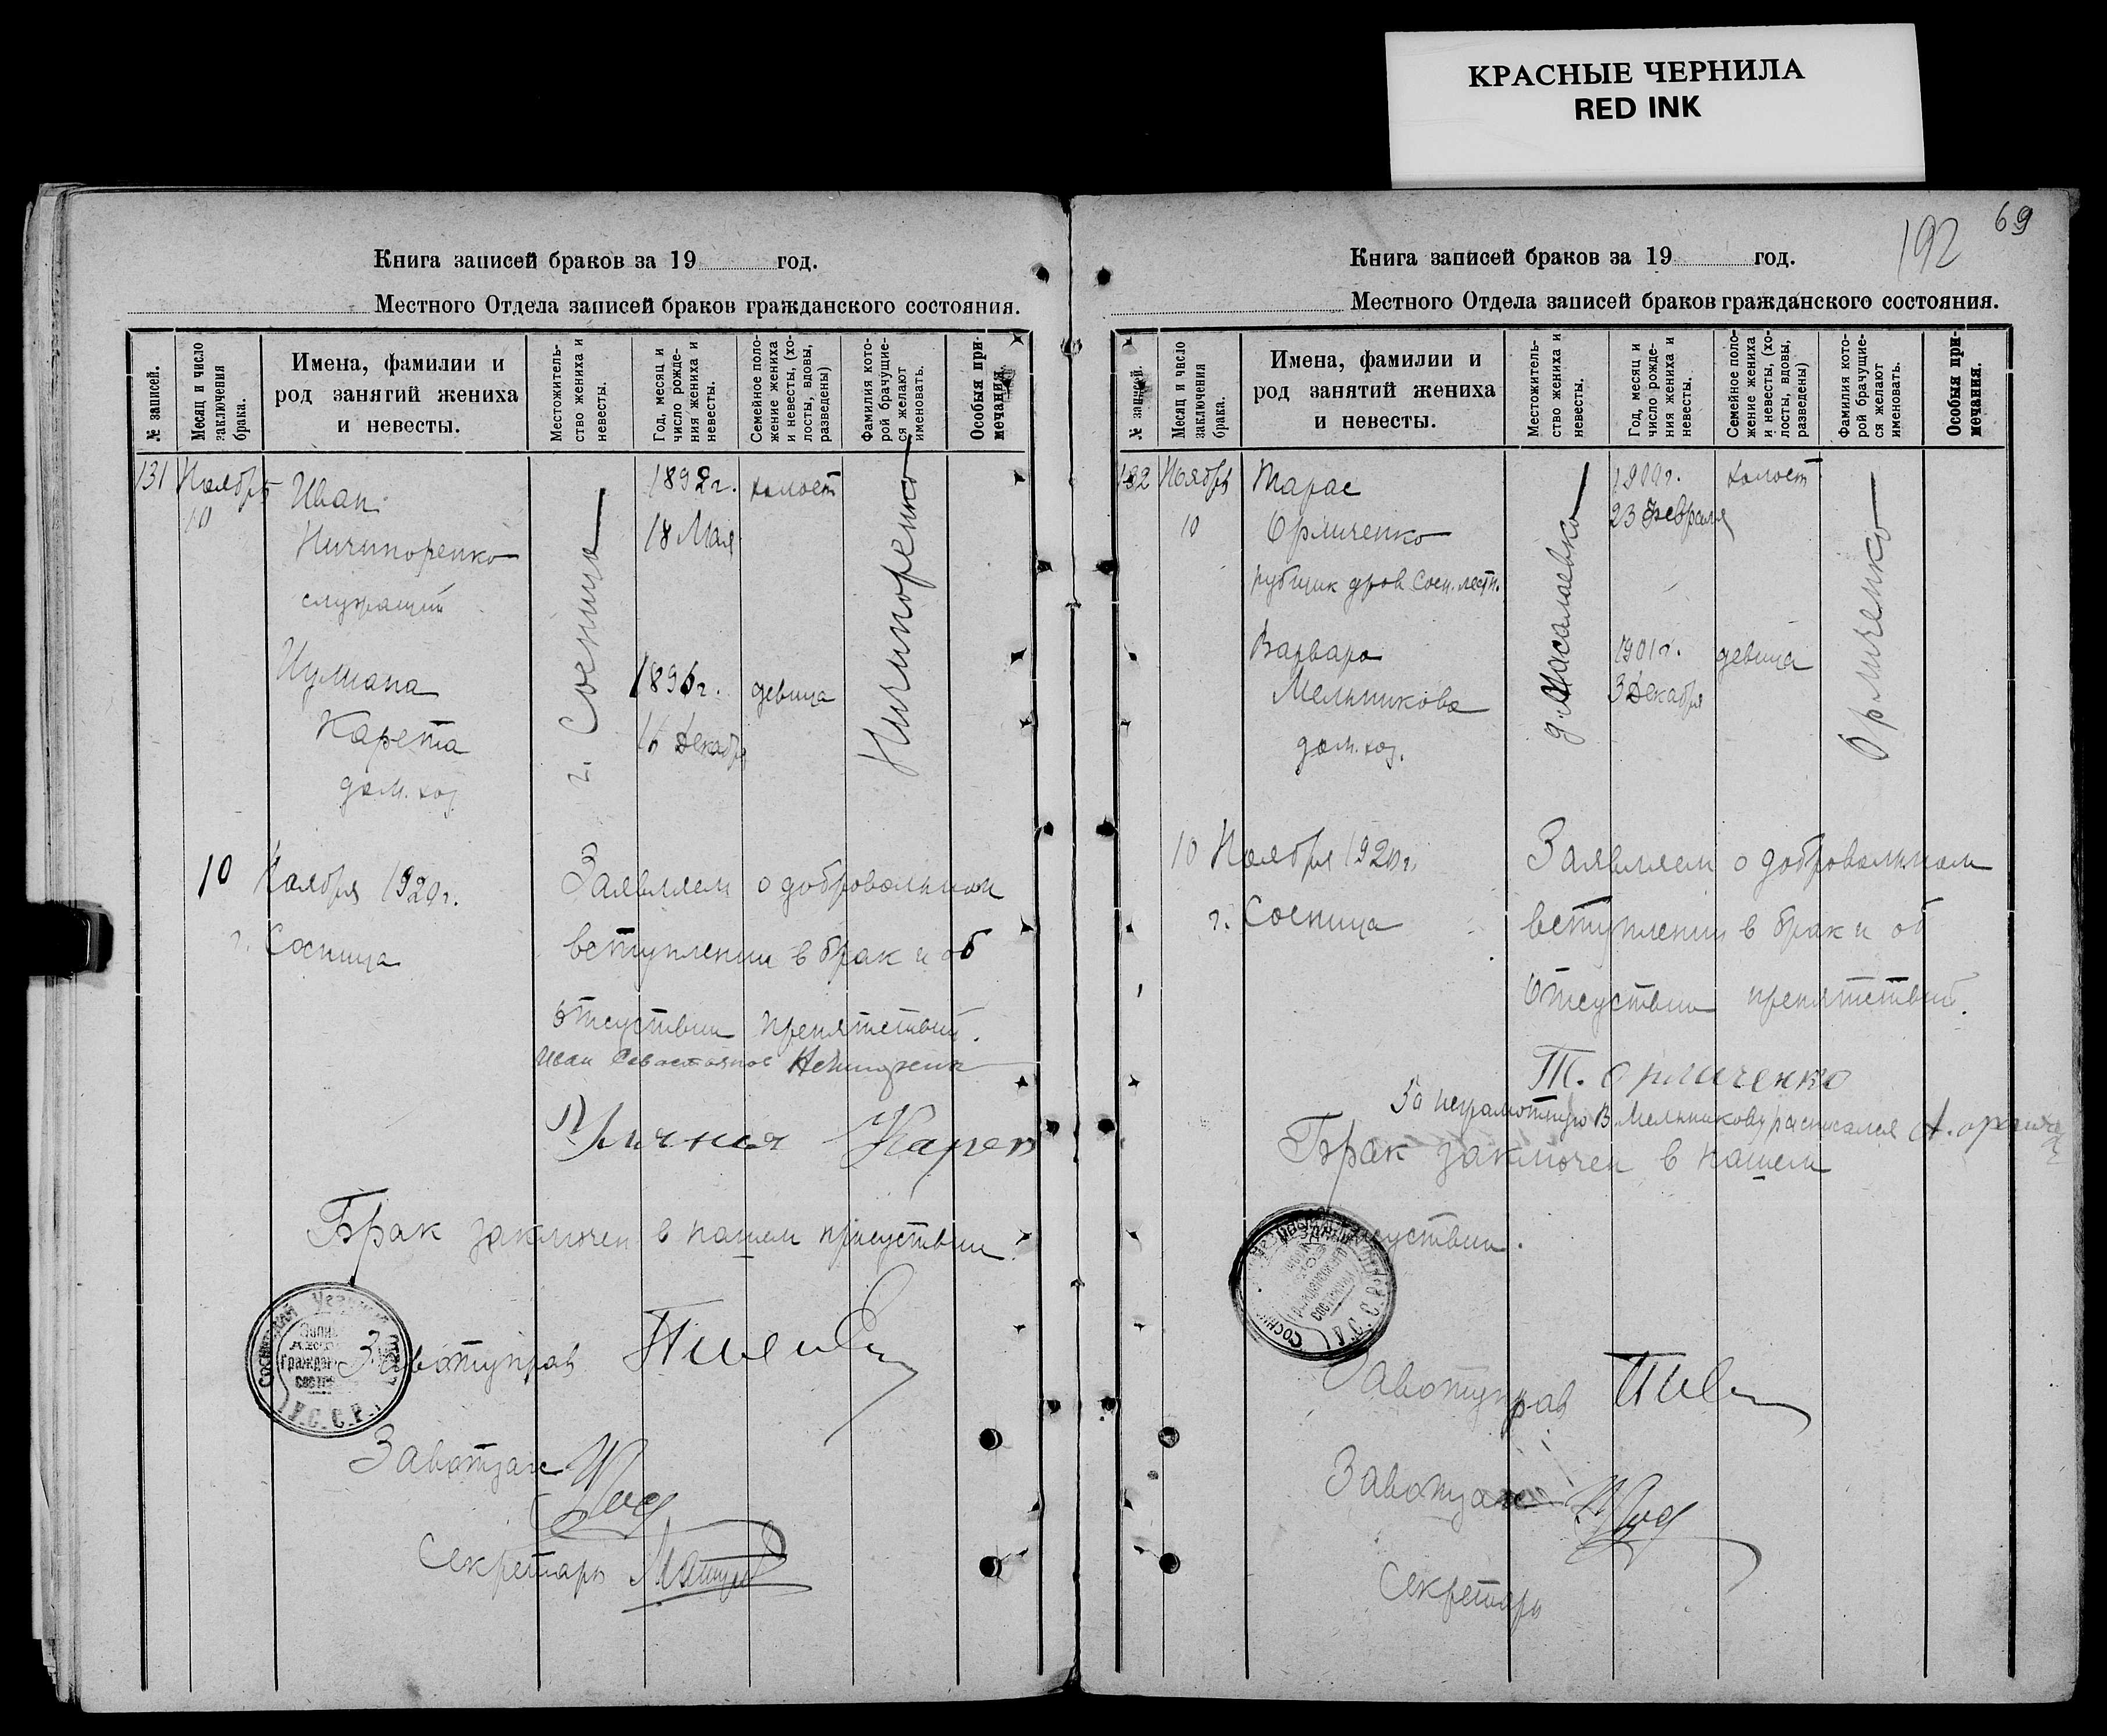 КРАСНЫЕ ЧЕРНИЛА
RED INK
Книга записей браков за 19 год.
Местного Отдела записей браков гражданского состояния.
№ записей.
Месяц и число заключения брака.
Имена, фамилии и
род занятий жениха
и невесты.
Местожитель-
ство жениха и
невесты.
Год, месяц и
число рожде-
ния жениха и
невесты.
Семейное поло-
жение жениха
и невесты, (хо-
лосты, вдовы,
разведены)
Фамилия кото-
рой брачущие-
ся желают
именовать.
Особыя при-
мечания.
131 Ноябрь Иван 1892г. холост
10 Ничипоренко 18 Мая
служащий
г. Сосница
Ничипоренко
Иулиана 1896г. девица
Карета 16 Декабр
дом. хоз.
10 Ноября 1920г. Заявляем о добровольном
г. Сосница вступлении в брак и об
отсуствии препятствий.
Иван Севастьянов
Карет
Брак заключен в нашем присуствии.
Завотуправ
Завотзаг
Секретарь
У.С.С.Р.
192 69
Книга записей браков за 19 год.
Местного Отдела записей браков гражданского состояния.
№ записей.
Месяц и число
заключения
брака.
Имена, фамилии и
род занятий жениха
и невесты.
Местожитель-
ство жениха и
невесты.
Год, месяц и
число рожде-
ния жениха и
невесты.
Семейное поло-
жение жениха
и невесты, (хо-
лосты, вдовы,
разведены)
Фамилия кото-
рой брачущие-
ся желают
именовать.
Особыя при-
мечания.
132 Ноябрь Тарас 1900г. холост
10 Орличенко 23 Февраля
рубщик дров Сосн. лесн.
д. Масалаевка
Орличенко
Варвара 1901г. девица
Мельникова 3 Декабря
дом. хоз.
10 Ноября 1920г. Заявляем о добровольном
г. Сосница вступлении в брак и об
отсуствии препятствий.
Т. Орличенко
За неграмотную В. Мельникову расписался А.
Брак заключен в нашем
Завотуправ
Завотзаг
Секретарь